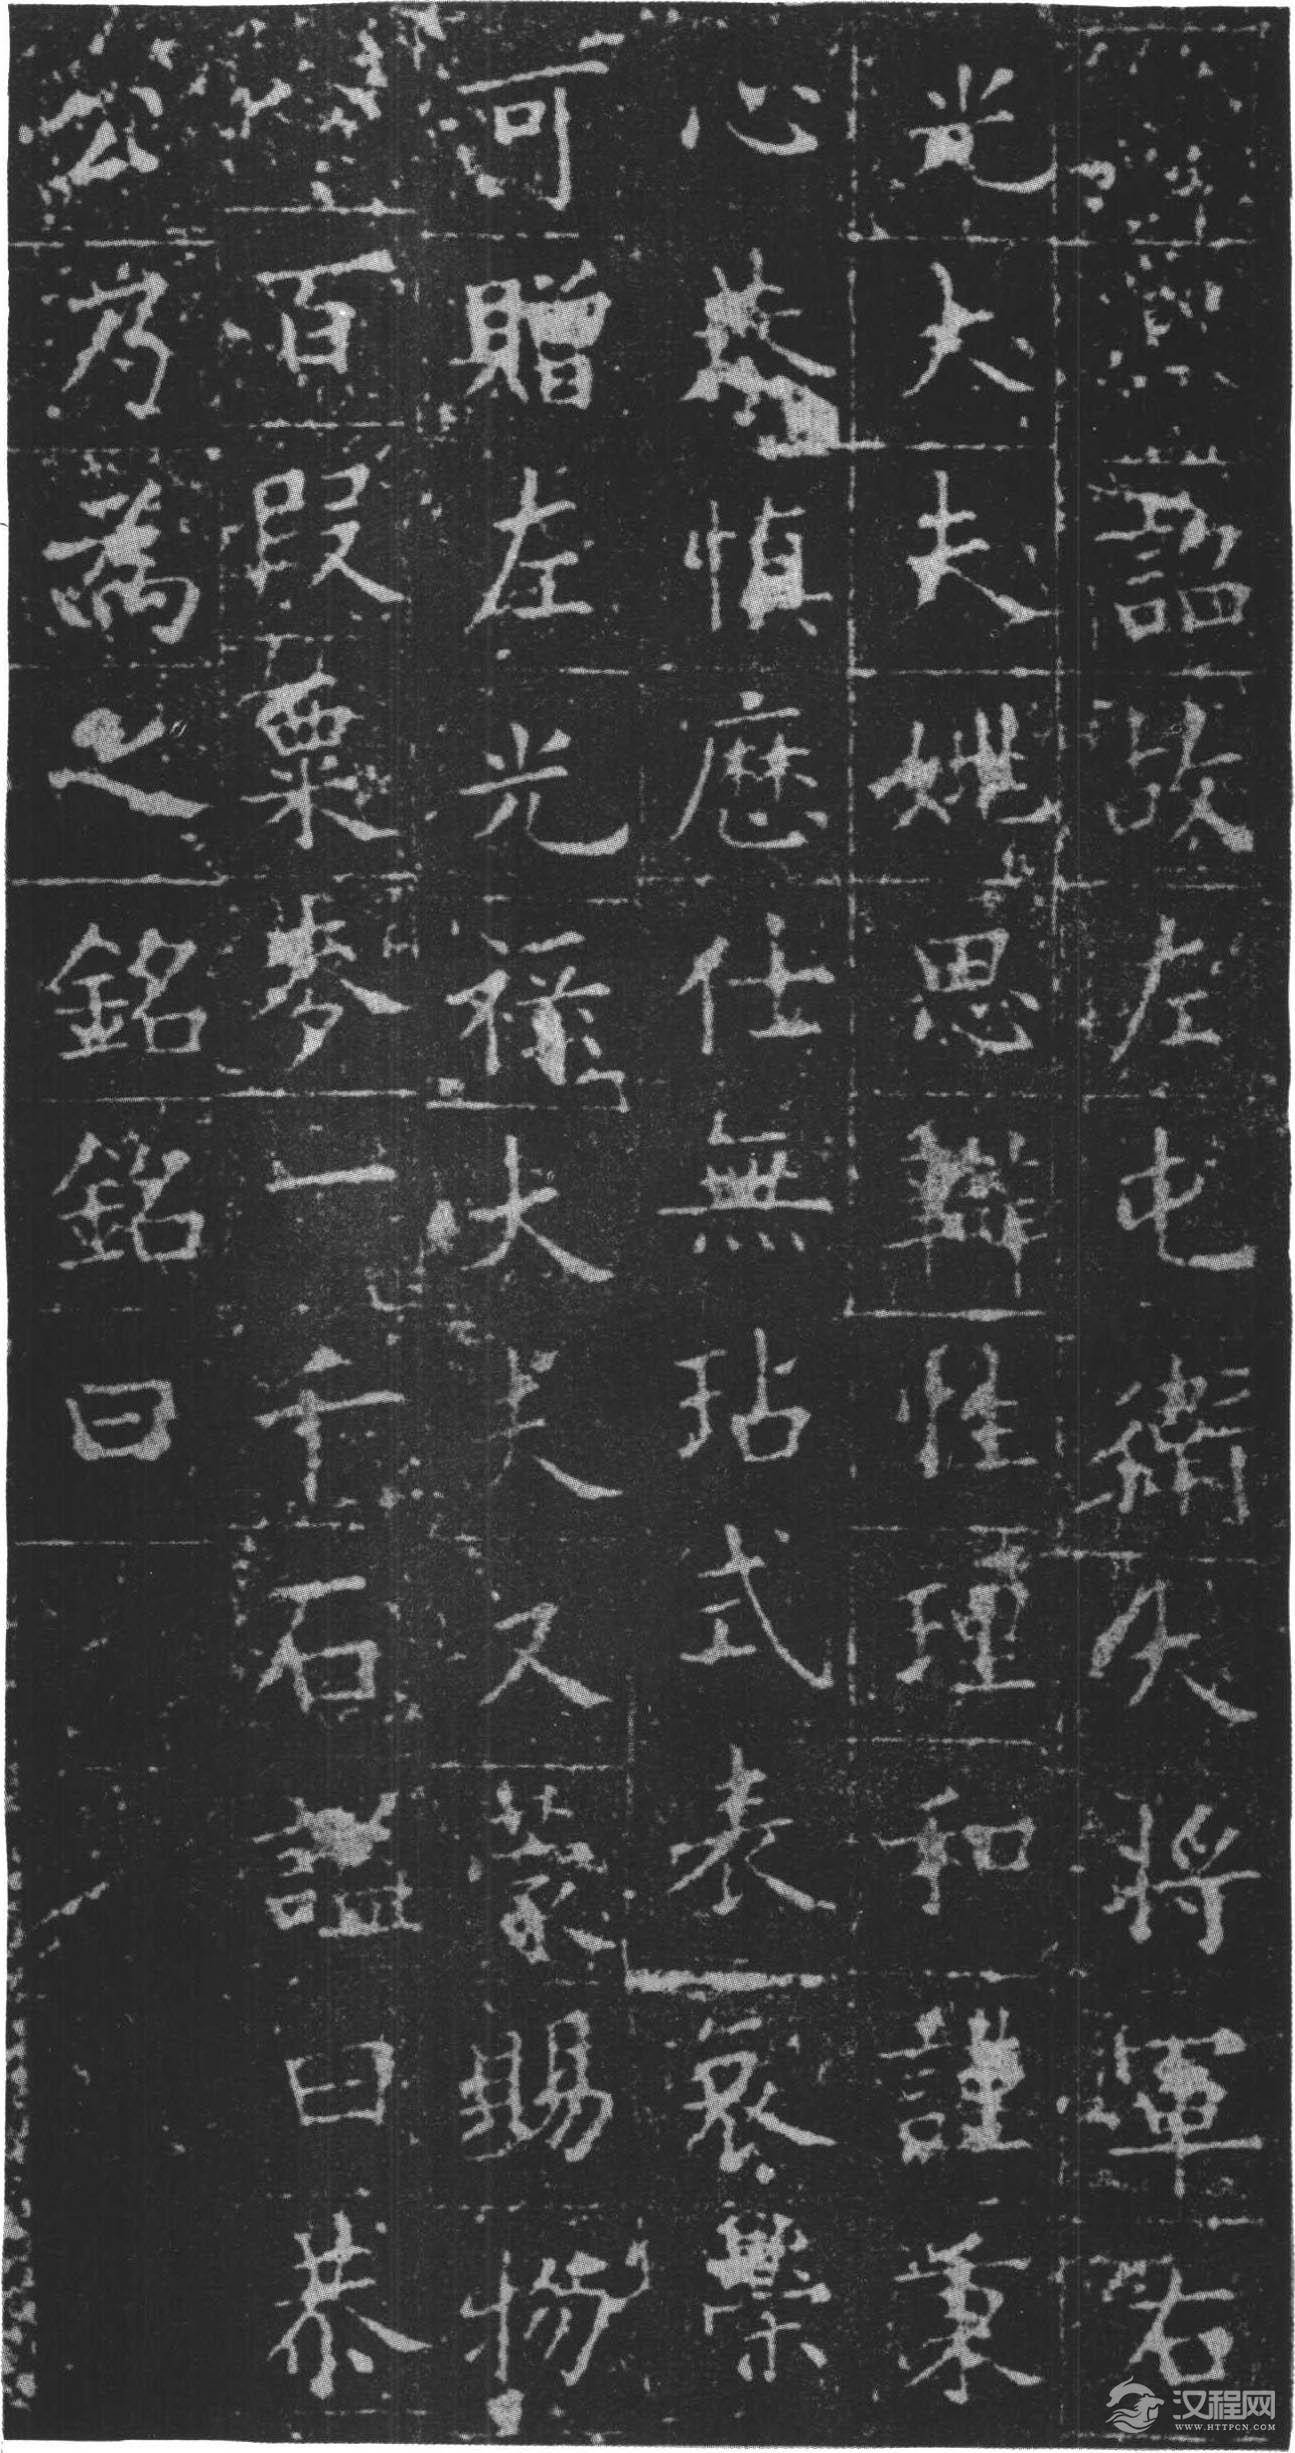 詔故左屯衛大將軍右
光大夫姚思辯性理和謹秉
心恭慎歷仕無玷式表哀榮
可贈左光祿大夫又蒙賜物
百段粟麥一千石謚曰恭
公乃為之銘銘曰
汉程网
WWW.HTTPCN.COM